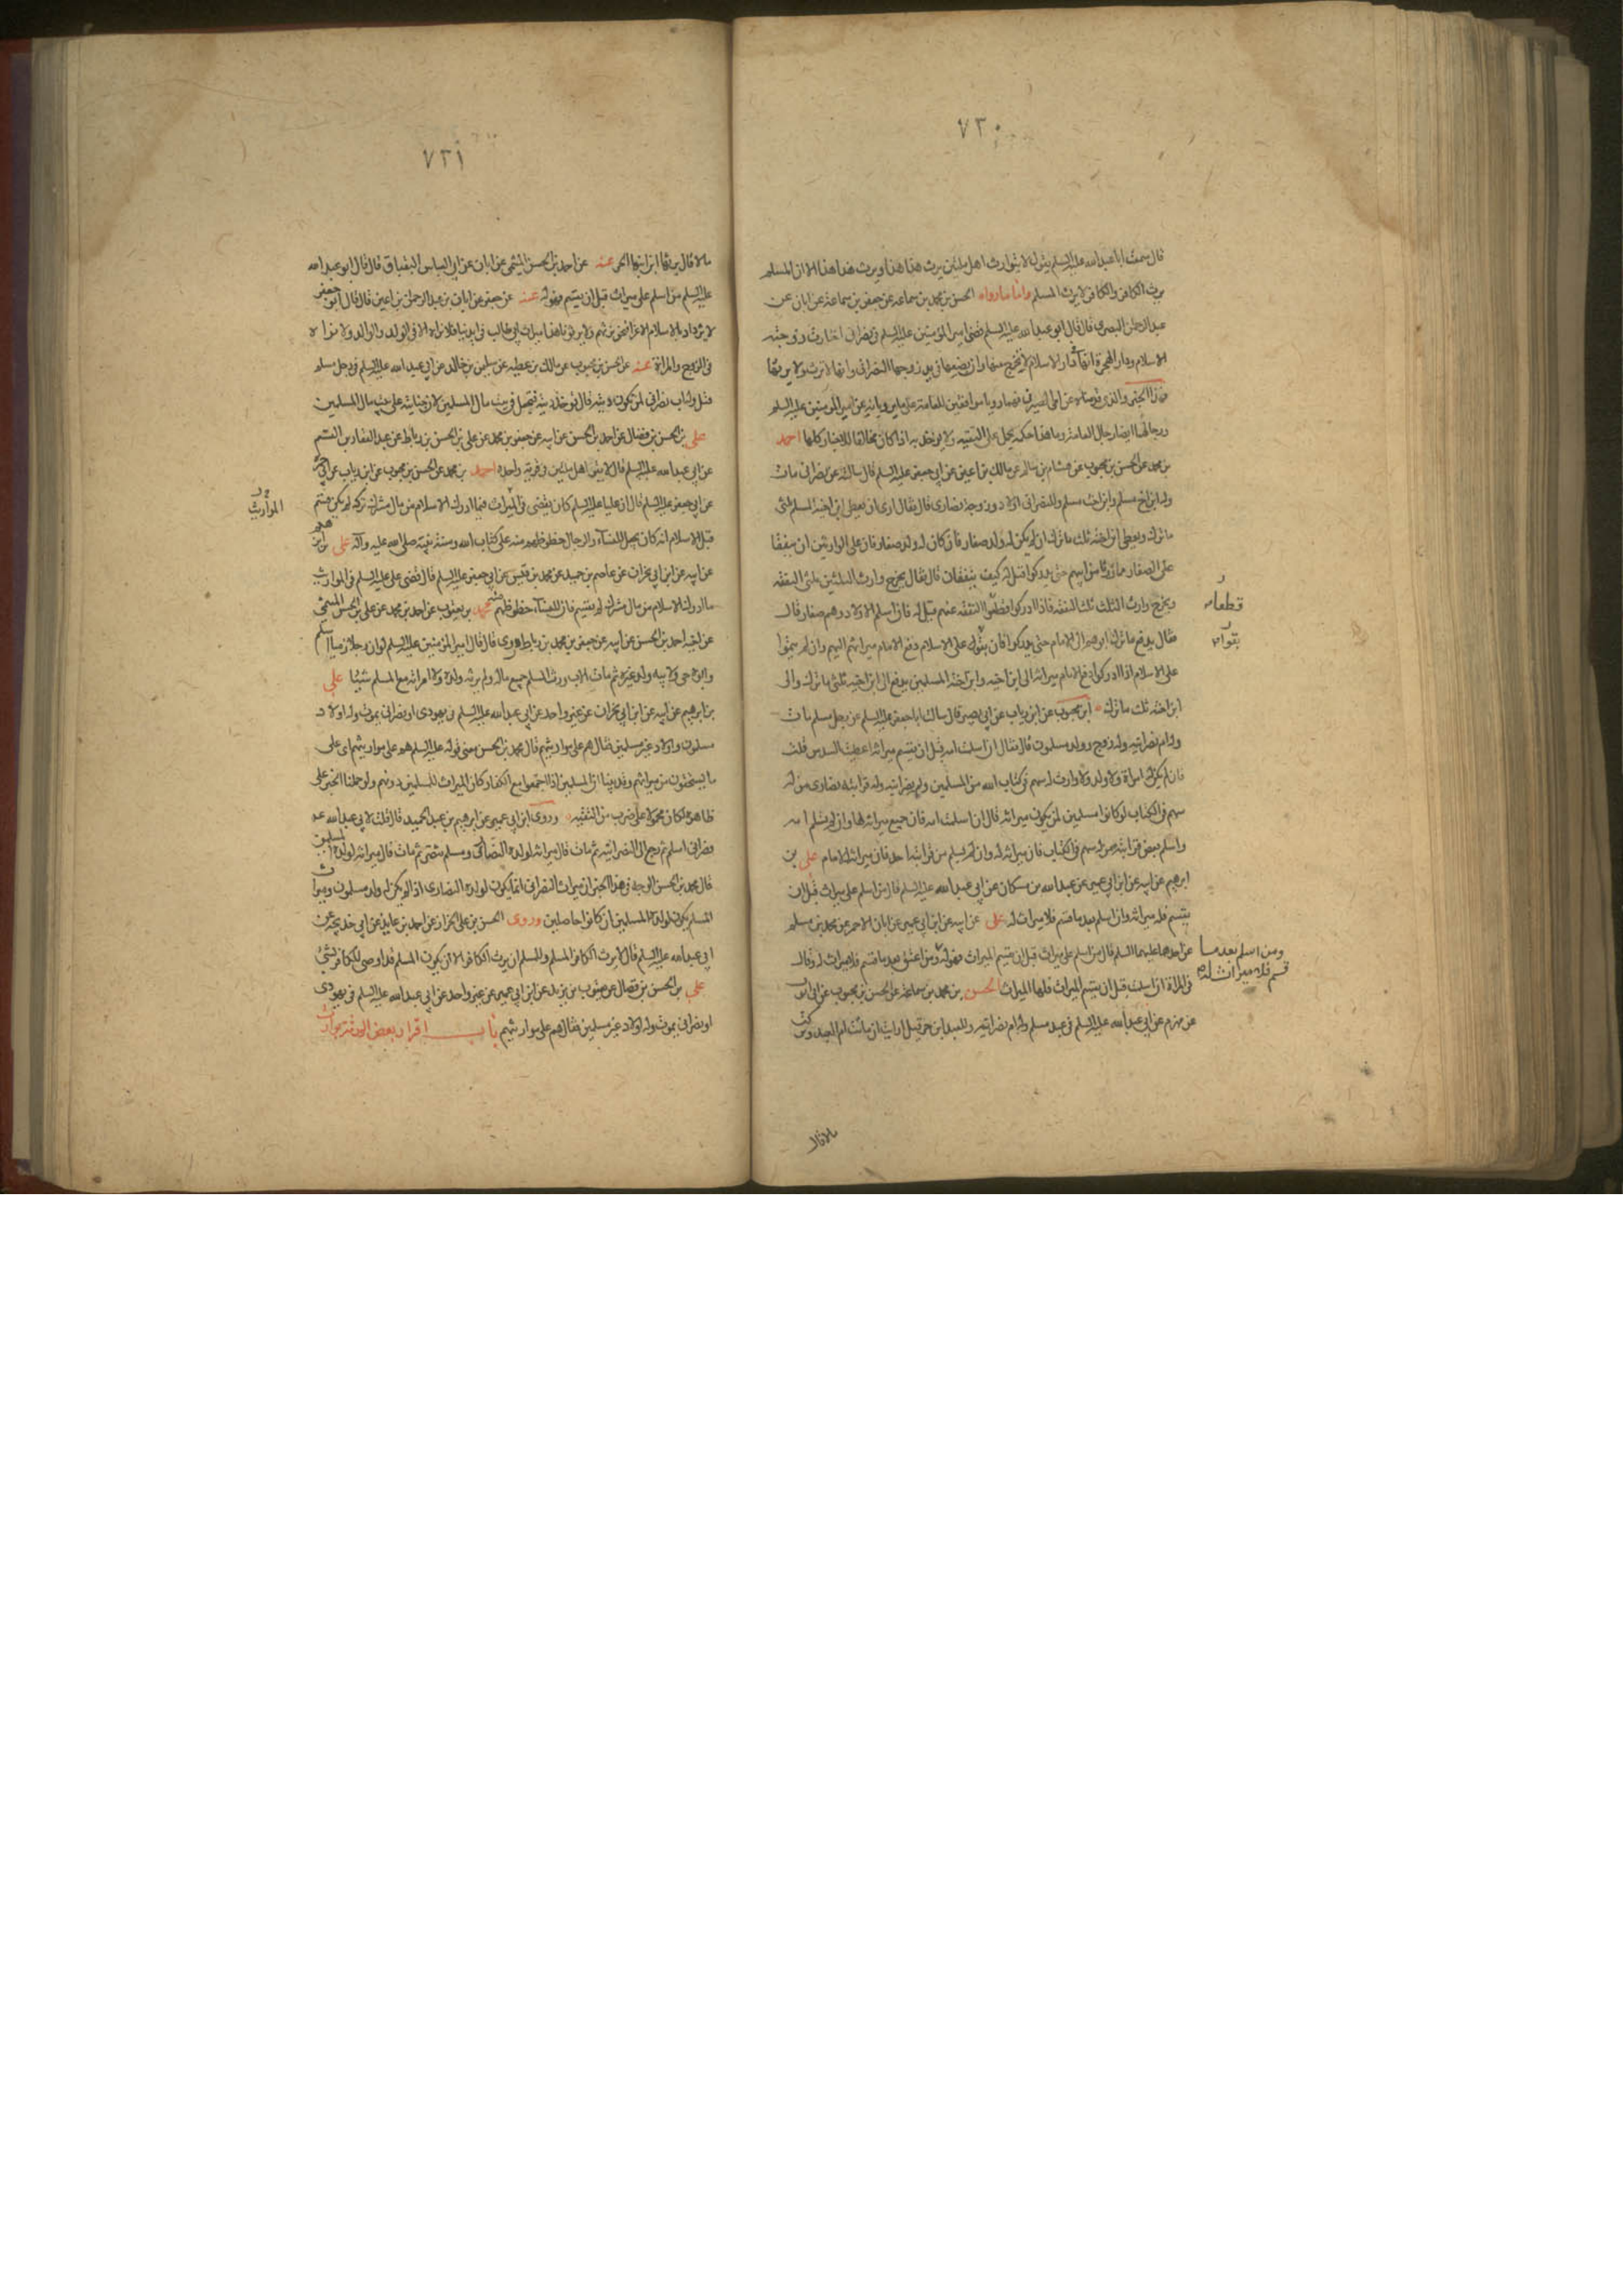 ٧٣٠
قال سمعت ابا عبد الله عليه السلم يقول لا يتوارث اهل ملتين يرث هذا هذا ويرث هذا هذا الا ان المسلم
يرث الكافر والكافر لا يرث المسلم واما ما رواه الحسن بن محمد بن سماعه عن جعفر بن سماعه عن ابان عن
عبد الرحمن البصري قال قال ابو عبد الله عليه السلم قضى امير المؤمنين عليه السلم في نصراني اختارت زوجته
الاسلام ودار الهجرة انها في دار الاسلام لا تخرج منها وان بضعها في يد زوجها النصراني وانها لا ترثه ولا يرثها
ورجالها ايضا رجال العامة وما هذا حكمه يحمل على التقيه ولا يؤخذ به اذا كان مخالفا للاخبار كلها احمد
بن محمد عن الحسن بن محبوب عن هشام بن سالم عن مالك بن اعين عن ابي جعفر عليه السلم قال سالته عن نصراني مات
وله ابن اخ مسلم وابن اخت مسلم وللنصراني اولاد وزوجة نصارى قال فقال ارى ان يعطى ابن اخيه المسلم ثلثي
ما ترك ويعطى ابن اخته ثلث ما ترك ان لم يكن له ولد صغار فان كان له ولد صغار فان على الوارثين ان ينفقا
على الصغار مما ورثا من ابيهم حتى يدركوا قيل له كيف ينفقان قال فقال يخرج وارث الثلثين ثلثي النفقه
ويخرج وارث الثلث ثلث النفقه فاذا ادركوا قطعوا النفقه عنهم قيل له فان اسلم الاولاد وهم صغار قال
فقال يدفع ما ترك ابوهم الى الامام حتى يدركوا فان بقوا على الاسلام دفع الامام ميراثهم اليهم وان لم يبقوا
على الاسلام اذا ادركوا دفع الامام ميراثه الى ابن اخيه وابن اخته المسلمين يدفع الى ابن اخيه ثلثي ما ترك والى
ابن اخته ثلث ما ترك ابن محبوب عن ابن رياب عن ابي بصير قال سالت ابا جعفر عليه السلم عن رجل مسلم مات
وله ام نصرانيه وله زوجه وولد مسلمون قال فقال ان اسلمت امه قبل ان يقسم ميراثه اعطيت السدس قلت
فان لم يكن له امراة ولا ولد ولا وارث له سهم في كتاب الله من المسلمين وله نصرانيه وله قرابة نصارى ممن له
سهم في الكتاب لو كانوا مسلمين لمن يكون ميراثه قال ان اسلمت امه فان جميع ميراثه لها وان لم تسلم امه
واسلم بعض قرابته ممن له سهم في الكتاب فان ميراثه له وان لم يسلم من قرابته احد فان ميراثه للامام على بن
ابرهيم عن ابيه عن ابن ابي عمير عن عبد الله بن مسكان عن ابي عبد الله عليه السلم قال من اسلم على ميراث قبل ان
يقسم فله ميراثه وان اسلم بعد ما قسم فلا ميراث له على عن ابيه عن ابن ابي عمير عن ابان الاحمر عن محمد بن مسلم
عن احدهما عليهما السلم قال من اسلم على ميراث قبل ان يقسم الميراث فهو له ومن اعتق بعد ما قسم فلا ميراث له وقال
في المراة ان اسلمت قبل ان يقسم الميراث فلها الميراث الحسن بن محمد بن سماعه عن الحسن بن محبوب عن ابي ايوب
عن مهزم عن ابي عبد الله عليه السلم في عبد مسلم وله ام نصرانيه وللعبد ابن حر قيل ارايت ان ماتت ام العبد وتركت
قطعوا
بقوا
ومن اسلم بعد ما
قسم فلا ميراث له
مالا قال
٧٣١
مالا قال يرثها ابن ابنها الحر عنه عن احمد بن الحسن الميثمي عن ابان عن ابي العباس البقباق قال قال ابو عبد الله
عليه السلم من اسلم على ميراث قبل ان يقسم فهو له عنه عن جعفر عن ابان عن عبد الرحمن بن اعين قال قال ابو جعفر
في الزوج والمراة عنه عن الحسن بن محبوب عن مالك بن عطيه عن سليمن بن خالد عن ابي عبد الله عليه السلم في رجل مسلم
قتل وله اب نصراني لمن تكون ديته قال تؤخذ ديته فتجعل في بيت مال المسلمين لان جنايته على بيت مال المسلمين
على بن الحسن بن فضال عن احمد بن الحسن عن ابيه عن جعفر بن محمد عن على بن الحسن بن رباط عن عبد الغفار بن القسم
عن ابي عبد الله عليه السلم قال لا يتوارث اهل ملتين في قرية واحده احمد بن محمد عن الحسن بن محبوب عن ابن رياب عن ابي
عن ابي جعفر عليه السلم قال ان عليا عليه السلم كان يقضي في المواريث فيما ادرك الاسلام من مال مشرك تركه لم يكن قسم
قبل الاسلام انه كان يجعل للنساء والرجال حظوظهم منه على كتاب الله وسنة نبيه صلى الله عليه وآله على بن ابرهيم
عن ابيه عن ابن ابي نجران عن عاصم بن حميد عن محمد بن قيس عن ابي جعفر عليه السلم قال قضى على عليه السلم في المواريث
ما ادرك الاسلام من مال مشرك لم يقسم فان للنساء حظوظهن منه محمد بن يعقوب عن احمد بن محمد عن على بن الحسن الميثمي
عن اخيه احمد بن الحسن عن ابيه عن جعفر بن محمد عن ابن رباط رفعه قال قال امير المؤمنين عليه السلم لو ان رجلا ذميا اسلم
وابوه حي ولابيه ولد غيره ثم مات الاب ورثه المسلم جميع ماله ولم يرثه ولده ولا امراته مع المسلم شيئا على
بن ابرهيم عن ابيه عن ابن ابي نجران عن غير واحد عن ابي عبد الله عليه السلم في يهودي او نصراني يموت وله اولاد
مسلمون واولاد غير مسلمين فقال هم على مواريثهم قال محمد بن الحسن معنى قوله عليه السلم هم على مواريثهم اى على
ما يستحقون من ميراثهم وقد بينا ان المسلمين اذا اجتمعوا مع الكفار كان الميراث للمسلمين دونهم ولو حملنا الخبر على
ظاهره لكان محمولا على ضرب من التقيه وروى ابن ابي عمير عن ابرهيم بن عبد الحميد قال قلت لابي عبد الله عه
نصراني اسلم ثم رجع الى النصرانيه ثم مات قال ميراثه لولده النصارى ومسلم تنصر ثم مات قال ميراثه لولده المسلمين
قال محمد بن الحسن الوجه في هذا الخبر ان ميراث النصراني انما يكون لولده النصارى اذا لم يكن له ولد مسلمون وميراث
المسلم يكون لولده المسلمين اذا كانوا حاصلين وروى الحسن بن على الخزاز عن احمد بن عايذ عن ابي خديجه عن
ابي عبد الله عليه السلم قال لا يرث الكافر المسلم وللمسلم ان يرث الكافر الا ان يكون المسلم قد اوصى للكافر بشئ
على بن الحسن بن فضال عن يعقوب بن يزيد عن ابن ابي عمير عن غير واحد عن ابي عبد الله عليه السلم في يهودى
او نصراني يموت وله اولاد غير مسلمين فقال هم على مواريثهم باب اقرار بعض الورثة بوارث
المواريث